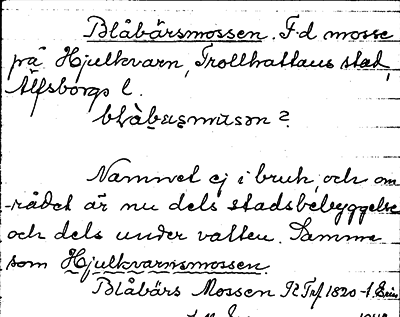 Blåbärsmossen. F.d mosse
på Hjulkvarn, Trollhättans stad,
Älfsborgs l.
Namnet ej i bruk, och om-
rådet är nu dels stadsbebyggelse
och dels under vatten. Samma
som Hjulkvarnsmossen.
Blåbärs Mossen 1820